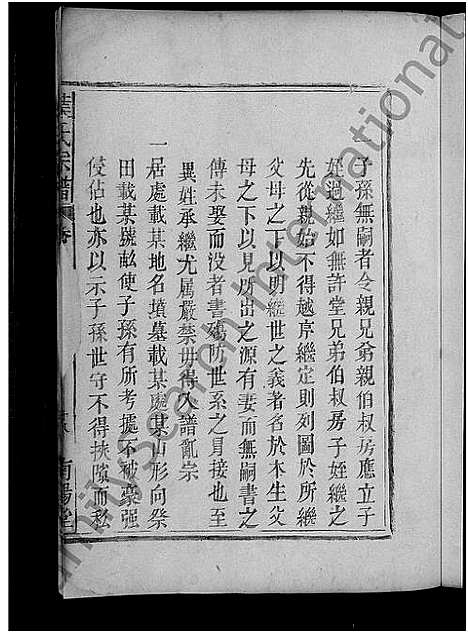 一子孫無嗣者令親兄弟親伯叔房應立子
姪過繼如無許堂兄弟伯叔房子姪繼之
先從親始不得越序繼定則列圖於所繼
父母之下以明繼世之義著名於本生父
母之下以見所出之源有妻而無嗣書之
傳未娶而没者書殤防世系之冒接也至
異姓承繼尤属嚴禁毋得入譜亂宗
一居處載某地名墳墓載某處某山形向祭
田載某號畝使子孫有所考據不被豪强
侵佔也亦以示子孫世守不得挾隙而私
氏宗譜
南陽堂
FamilySearch International